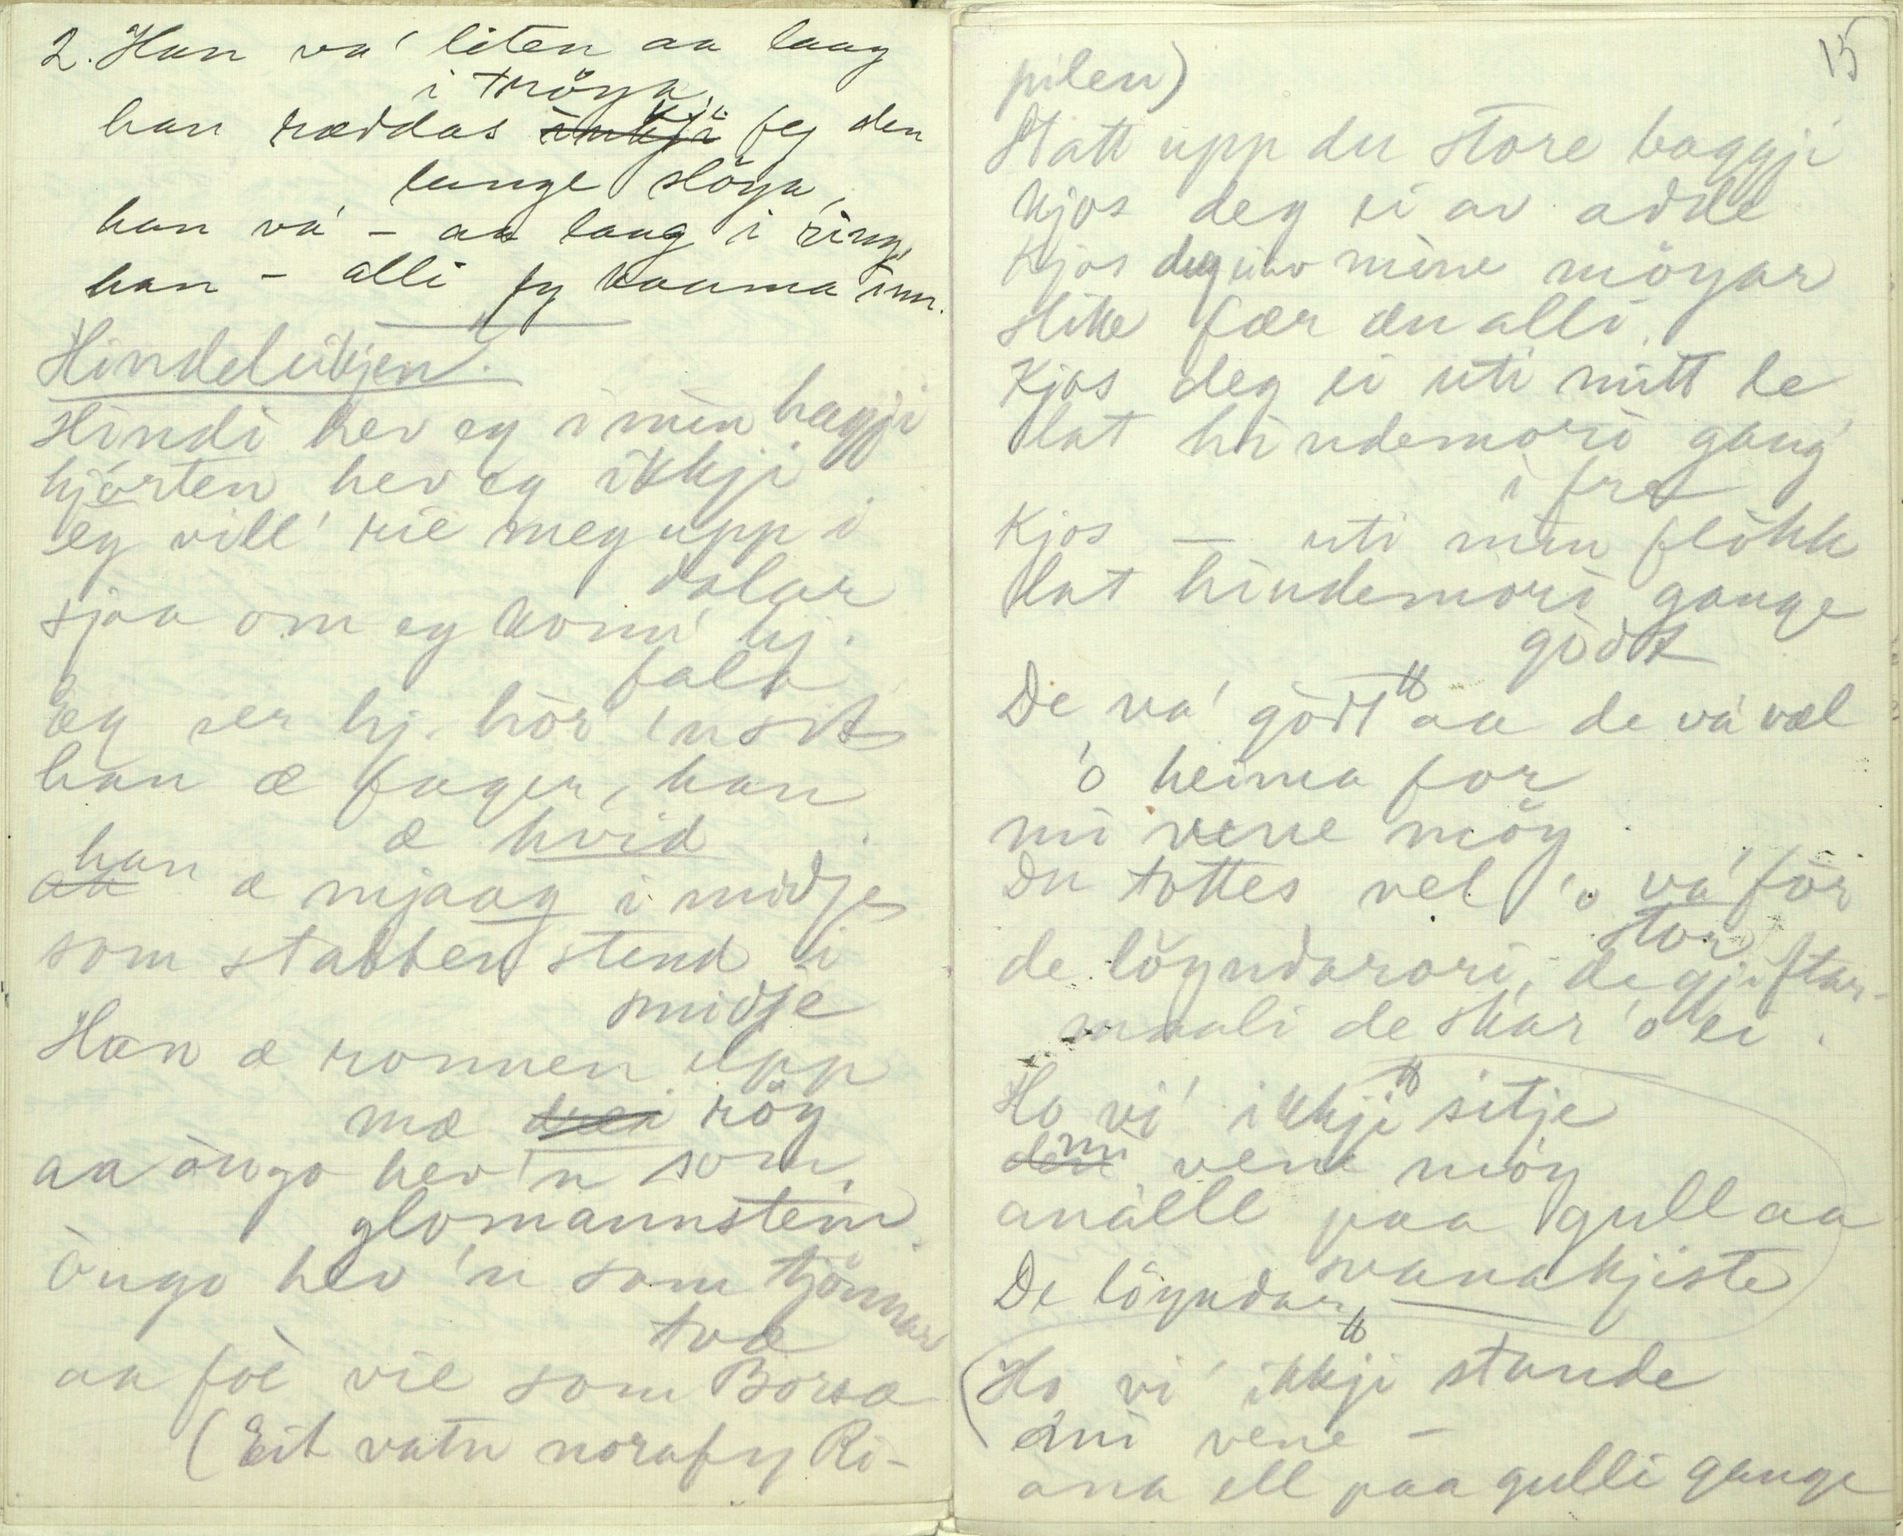 2. Han va' liten aa laag
i tröya,
han ræddas ikkji fy den
lange slöya,
han va' - aa laag i ring,
han - alli fy kaama inn.
Hindeleikjen.
Hindi hev eg i min haggji
hjorten hev eg ikkji
eg vill' rie meg upp i
dalar
sjaa om eg komm' hj.
fala
Eg ser hj. hòr 'n sit
han æ fager, han
æ hvid
han
aa æ mjaag i midje
som stabben stend i
smidje
Han æ ronnen upp
mæ röy
aa òugo hev 'n som
glomannstein
Òugo hev 'n som tjönnar
två
aa föe vie som Borsæ
(Eit vatn norafy Ri-
15
pilen)
Statt upp du store baggji
kjos deg ei av adde
Kjos deg ei av mine möyar
slike fær du alli.
Kjos deg ei uti mitt le
lat hindemori gang'
i fre
Kjos — uti min flokk
lat hindemori gange
godt
De va' godt aa de vá væl
'o heima for
mi vene möy
Du tottes vel 'o va' for
stor
de löyndarori, de gjiftar-
maali de skar 'o ei.
Ho vi' ikkji sitje
mi
den vene möy
anall paa gull aa
svanakjiste
De löyndar —
(Ho vi' ikkji stande
mi vene -
ana ell paa gulli gange